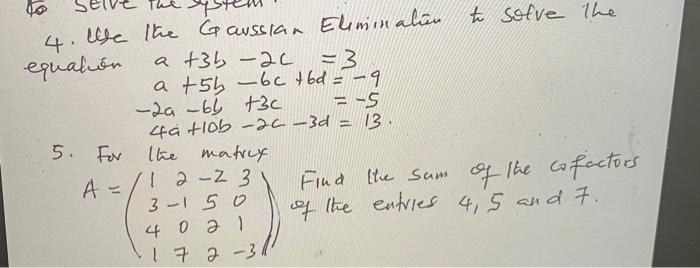 to solve the system.
4. Use the Gaussian Elimination to solve the
equation a +3b -2c = 3
a +5b -6c +6d = -9
-2a -6b +3c = -5
4a +10b -2c -3d = 13.
5. For the matrix
A = ( 1 2 -2 3 Find the sum of the cofactors
3 -1 5 0 of the entries 4, 5 and 7.
4 0 2 1
1 7 2 -3 )